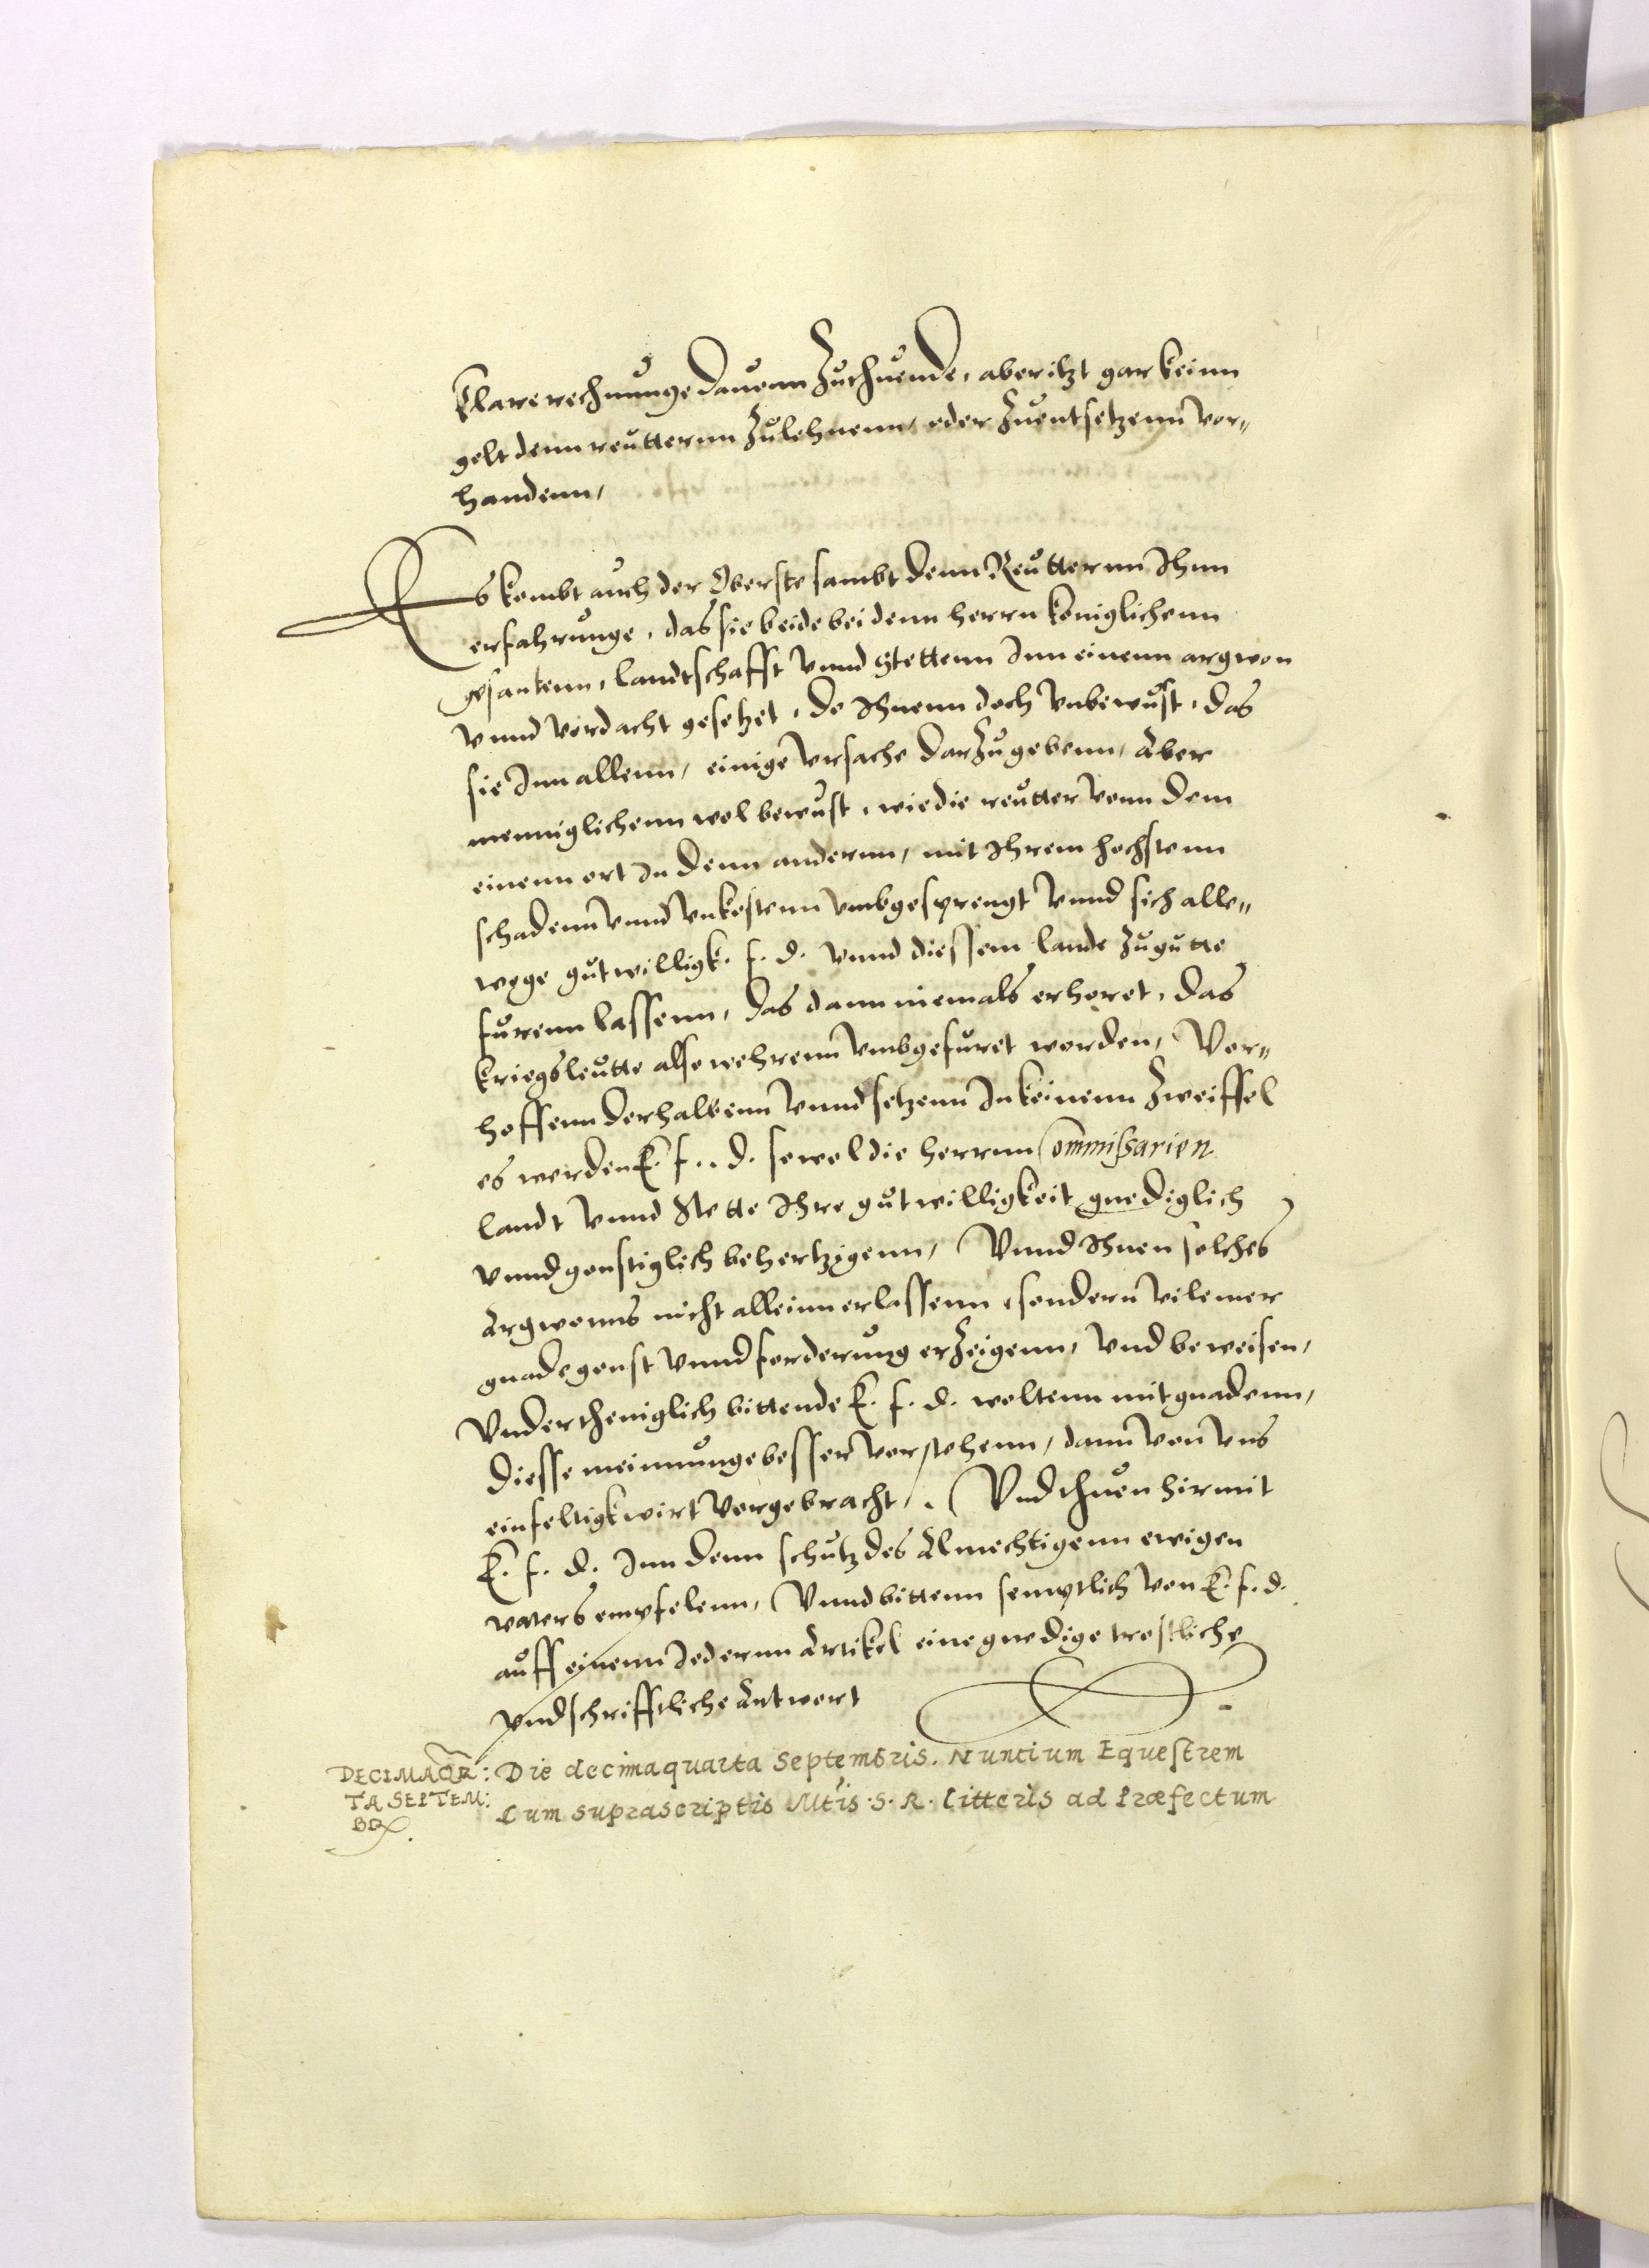 klare rechnunge dauonn zuthuende, aber itzt gar keinn
gelt denn reutternn zulehnenn, oder zuentsetzenn vor„
handenn,
Es kombt auch der Oberste sambt denn Reutternn Ihnn
erfahrunge, das sie beide bei denn herrn königlichenn
gesantenn, landtschafft vnnd Stettenn Inn einenn argwon
vnnd verdacht gesetzet, do Ihnenn doch vnbewust, das
sie Inn allenn, einige vrsache darzu gebenn, Aber
menniglichenn wol bewust, wie die reutter vonn dem
einenn ort In denn andernn, mit Ihrem hochstenn
schadenn vnnd vnkostenn vmbgesprengt vnnd sich alle„
wege gutwilligk. f. d. vnnd diessem lande zugutte
furenn lassenn, das dann niemals erhoret, das
kriegsleutte also wehrenn vmbgefuret worden, Vor„
hoffenn derhalbenn vnnd setzenn In keinenn zweiffel
es werden E. f. d. sowol die herrnn Commissarien
landt vnnd Stette Ihre gutwilligkeit gnediglich
vnnd gonstiglich behertzigenn, Vnnd Ihnen solches
Argwonns nicht alleinn erlassenn, sondern vilemer
gnade gonst vnnd forderung erzeigenn, vnd beweisen,
Vndertheniglich bittende E. f. d. woltenn mit gnadenn,
diesse meinnunge besser vorstehenn, dann von vns
einfeltigk wirt vorgebracht, Vnd thuen hirmit
E. f. d. Inn denn schutz des Almechtigenn ewigen
vaters empfelenn, Vnnd bittenn semptlich von E. f. d.
auff einenn Iedernn Artikel eine gnedige trostliche
vnd schrifftliche Antwort
DECIMAQR: Die decimaquarta Septembris. Nuncium Equestrem
TA SEPTEM: Cum suprascriptis Mtis. S. R. litteris ad Præfectum
BR.